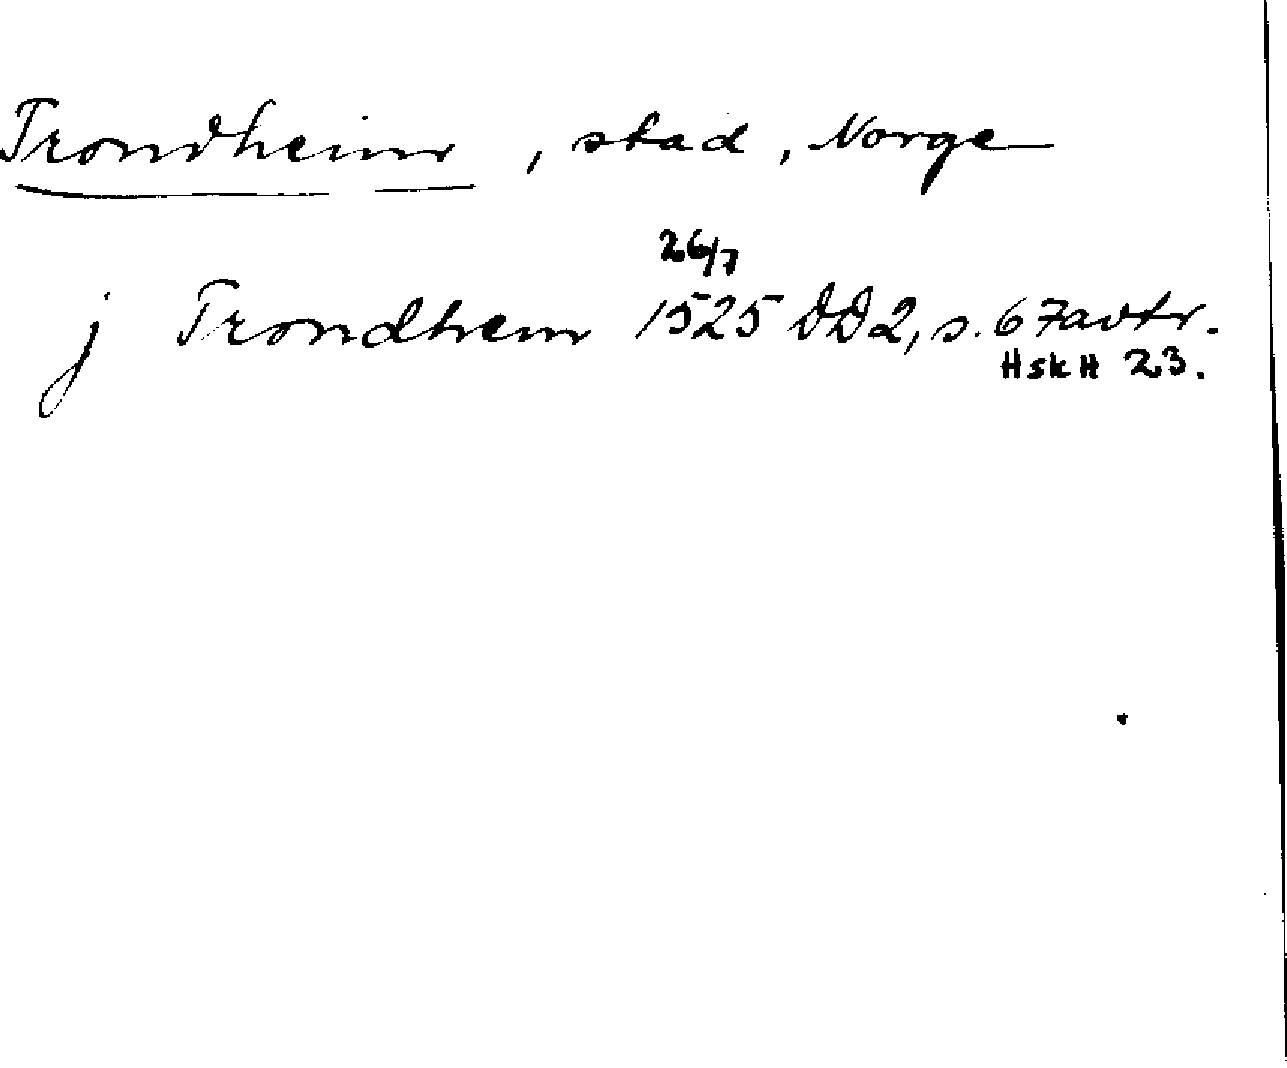 Trondheim, stad, Norge
26/7
j Trondhem 1525 DD2, s. 67 avtr.
HskH 23.